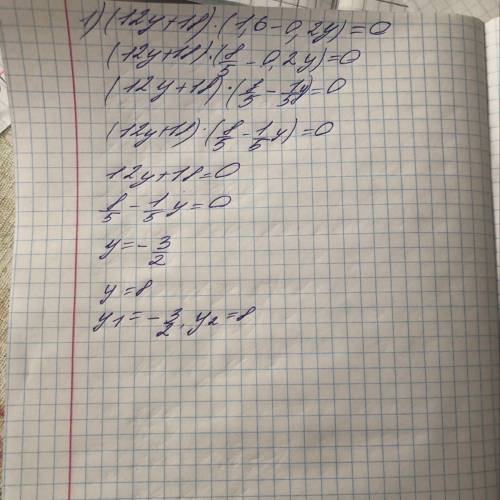 1) (12y+18)·(1,6-0,2y)=0
(12y+18)·(8/5-0,2y)=0
(12y+18)·(8/5-1/5y)=0
(12y+18)·(8/5-1/5y)=0
12y+18=0
8/5-1/5y=0
y=-3/2
y=8
y1=-3/2, y2=8